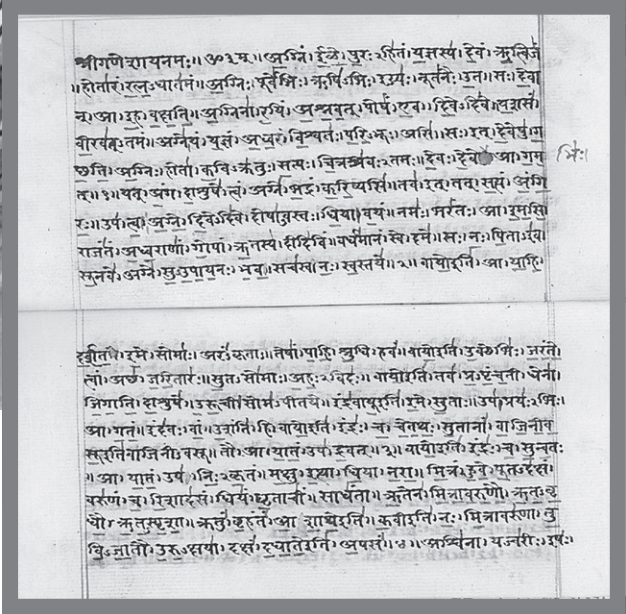 श्रीगणेशायनमः॥ ॐ३म्॥ अ॒ग्निं। ई॒ळे॒। पु॒रः२हि॑तं। य॒ज्ञस्य॑। दे॒वं। ऋ॒त्विजं॑
॥ होता॑रं। र॒त्न॒२धात॑मं॥ अ॒ग्निः। पूर्वे॑भिः। ऋषि॑२भिः। ईड्यः॑। नूत॑नैः। उ॒त। सः। दे॒वा
न्। आ। इ॒ह। व॒क्ष॒ति॒॥ अ॒ग्निना॑। र॒यिं। अ॒श्न॒व॒त्। पोषं॑। ए॒व। दि॒वे२दि॑वे॥ य॒शसं॑।
वी॒रव॑त्२तमं॥ अग्ने॑। यं। य॒ज्ञं। अ॒ध्व॒रं। वि॒श्वतः॑। प॒रि॒२भूः। असि॑॥ सः। इत्। दे॒वेषु॑। ग
च्छ॒ति॒॥ अ॒ग्निः। होता॑। क॒वि२क्र॑तुः। स॒त्यः। चि॒त्रश्र॑वः२तमः॥ दे॒वः। दे॒वे आ। ग॒म॒
भिः॑।
त्॥१॥ यत्। अं॒ग। दा॒शुषे॑। त्वं। अग्ने॑। भ॒द्रं। क॒रि॒ष्यसि॑॥ तव॑। इत्। तत्। स॒त्यं। अं॒गि॒
रः॒॥ उप॑। त्वा॒। अ॒ग्ने॒। दि॒वे२दि॑वे। दोषा॑२वस्तः। धि॒या। व॒यं॥ नमः॑। भरं॑तः। आ। इ॒म॒सि॒॥
राजं॑तं। अ॒ध्व॒राणां॑। गो॒पां। ऋ॒तस्य॑। दीदि॑विं॥ वर्ध॑मानं। स्वे। दमे॑॥ सः। नः॒। पि॒ता२इ॑व।
सू॒नवे॑। अग्ने॑। सु॒२उ॒पा॒य॒नः। भ॒व॒॥ सच॑स्व। नः॒। स्व॒स्तये॑॥२॥ वायो॒इति॑। आ। या॒हि॒।
द॒र्श॒त॒। इ॒मे। सोमाः॑। अरं॑२कृताः॥ तेषां॑। पा॒हि॒। श्रु॒धि। हवं॑॥ वायो॒इति॑। उ॒क्थेभिः॑। जरं॑ते।
त्वां। अच्छ॑। ज॒रि॒तारः॑॥ सु॒त२सो॑माः। अ॒हः॒२विदः॑॥ वायो॒इति॑। तव॑। प्र॒२पृं॒च॒ती। धेना॑।
जि॒गा॒ति॒। दा॒शुषे॑॥ उ॒रू॒ची। सोम॑२पीतये॥ इंद्र॑वायू॒इति॑। इ॒मे। सु॒ताः। उप॑। प्रयः॑२भिः।
आ। ग॒तं॒॥ इंद॑वः। वां॒। उ॒शंति॑। हि॥ वायो॒इति॑। इंद्रः॑। च॒। चे॒त॒थः॒। सु॒तानां॑। वा॒जि॒नी॒व॒
सू॒इति॑वाजिनी२वसू॥ तौ। आ। या॒तं॒। उप॑। द्र॒वत्॥३॥ वायो॒इति॑। इंद्रः॑। च॒। सु॒न्व॒तः
॥ आ। या॒तं॒। उप॑। निः॒२कृ॒तं॥ म॒क्षु। इ॒त्था। धि॒या। न॒रा॒॥ मि॒त्रं। हु॒वे॒। पू॒त२द॑क्षं।
वरु॑णं। च॒। रि॒शाद॑सं॥ धियं॑। घृ॒ताचीं॑। साधं॑ता॥ ऋ॒तेन॑। मि॒त्रा॒व॒रु॒णौ॒। ऋ॒त॒२वृ॒
धौ॒। ऋ॒त॒२स्पृ॒शा॒॥ क्रतुं॑। बृ॒हंतं॑। आ॒शा॒थे॒इति॑॥ क॒वीइति॑। नः॒। मि॒त्रावरु॑णा। तु॒
वि॒२जा॒तौ। उ॒रु॒२क्षया॑॥ दक्षं॑। द॒धा॒ते॒इति॑। अ॒पसं॑॥४॥ अश्वि॑ना। यज्व॑रीः। इषः॑।